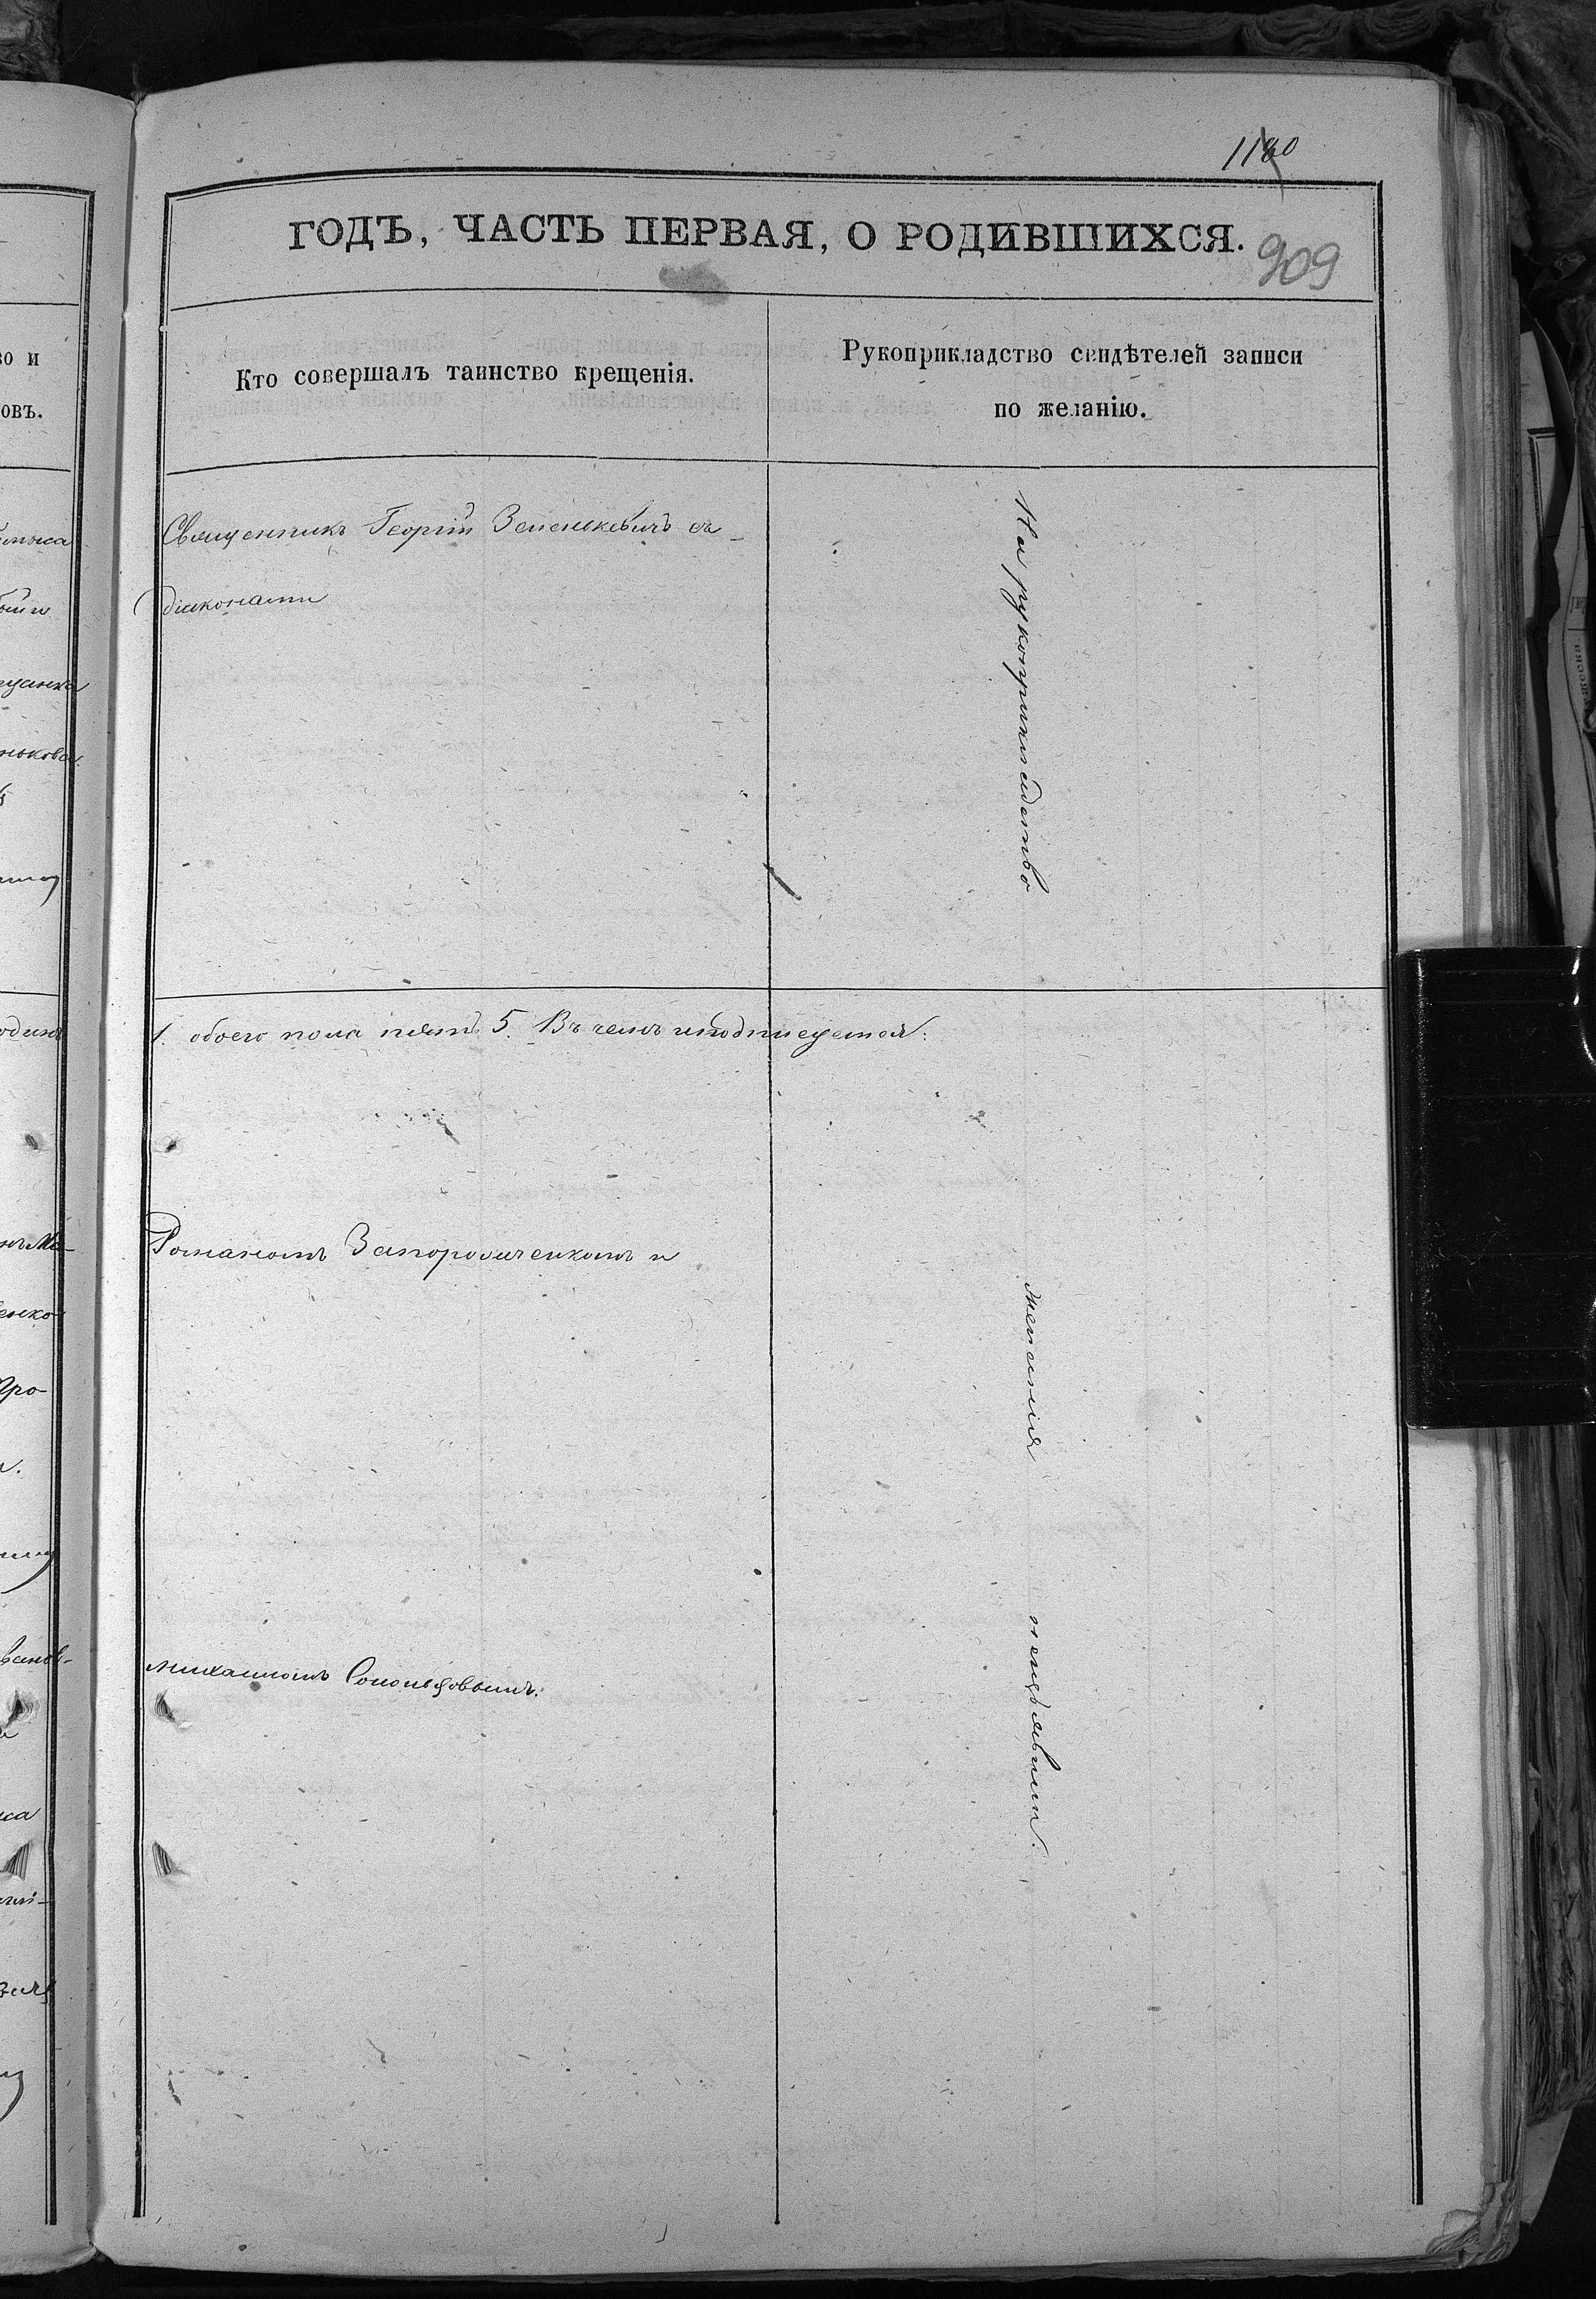 1180
ГОДЪ, ЧАСТЬ ПЕРВАЯ, О РОДИВШИХСЯ.
909
Кто совершалъ таинство крещенія.
Рукоприкладство свидѣтелей записи
по желанію.
Священникъ Георгій Зеленкевичъ съ
діаконами
На рукоприкладство
1. обоего пола пять 5. Въ чемъ и подписуемся:
Романомъ Запорожченкомъ и
желанія
Михаиломъ Сокольцовымъ.
неизъявили.
во и
овъ.
ецанка
нькова
один
енко
Про